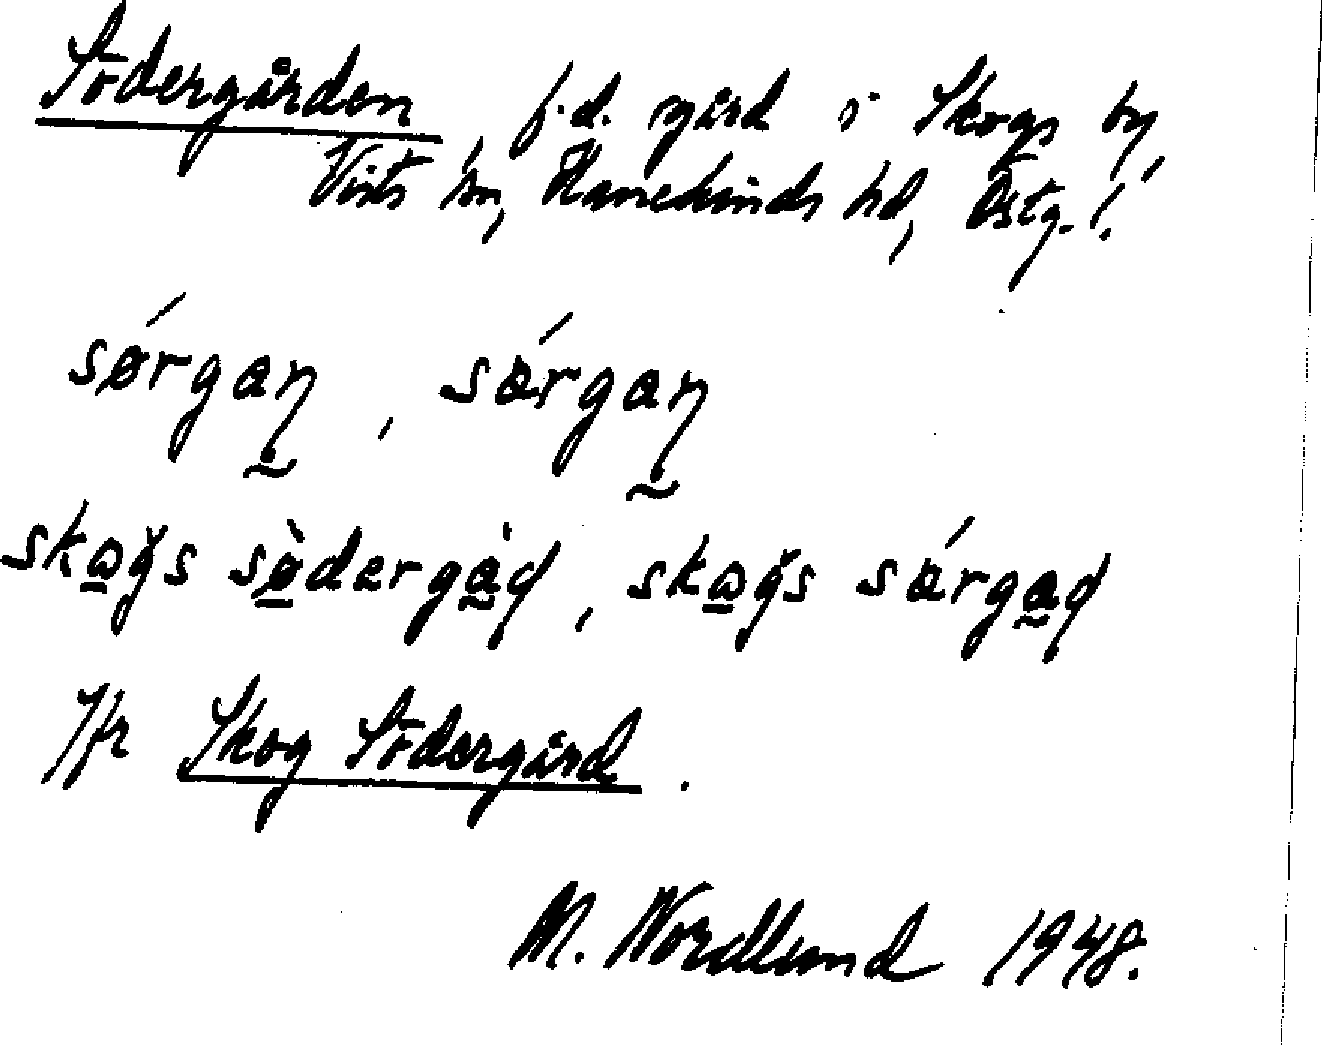 Södergården, f.d. gård i Skogs by,
Vists sn, Hanekinds hd, Östg. l.
sǿrgan̥, sǿrgan̥
skoğs sødergad, skoğs sǿrgad
Jfr Skog Södergård.
M. Nordlund 1948.